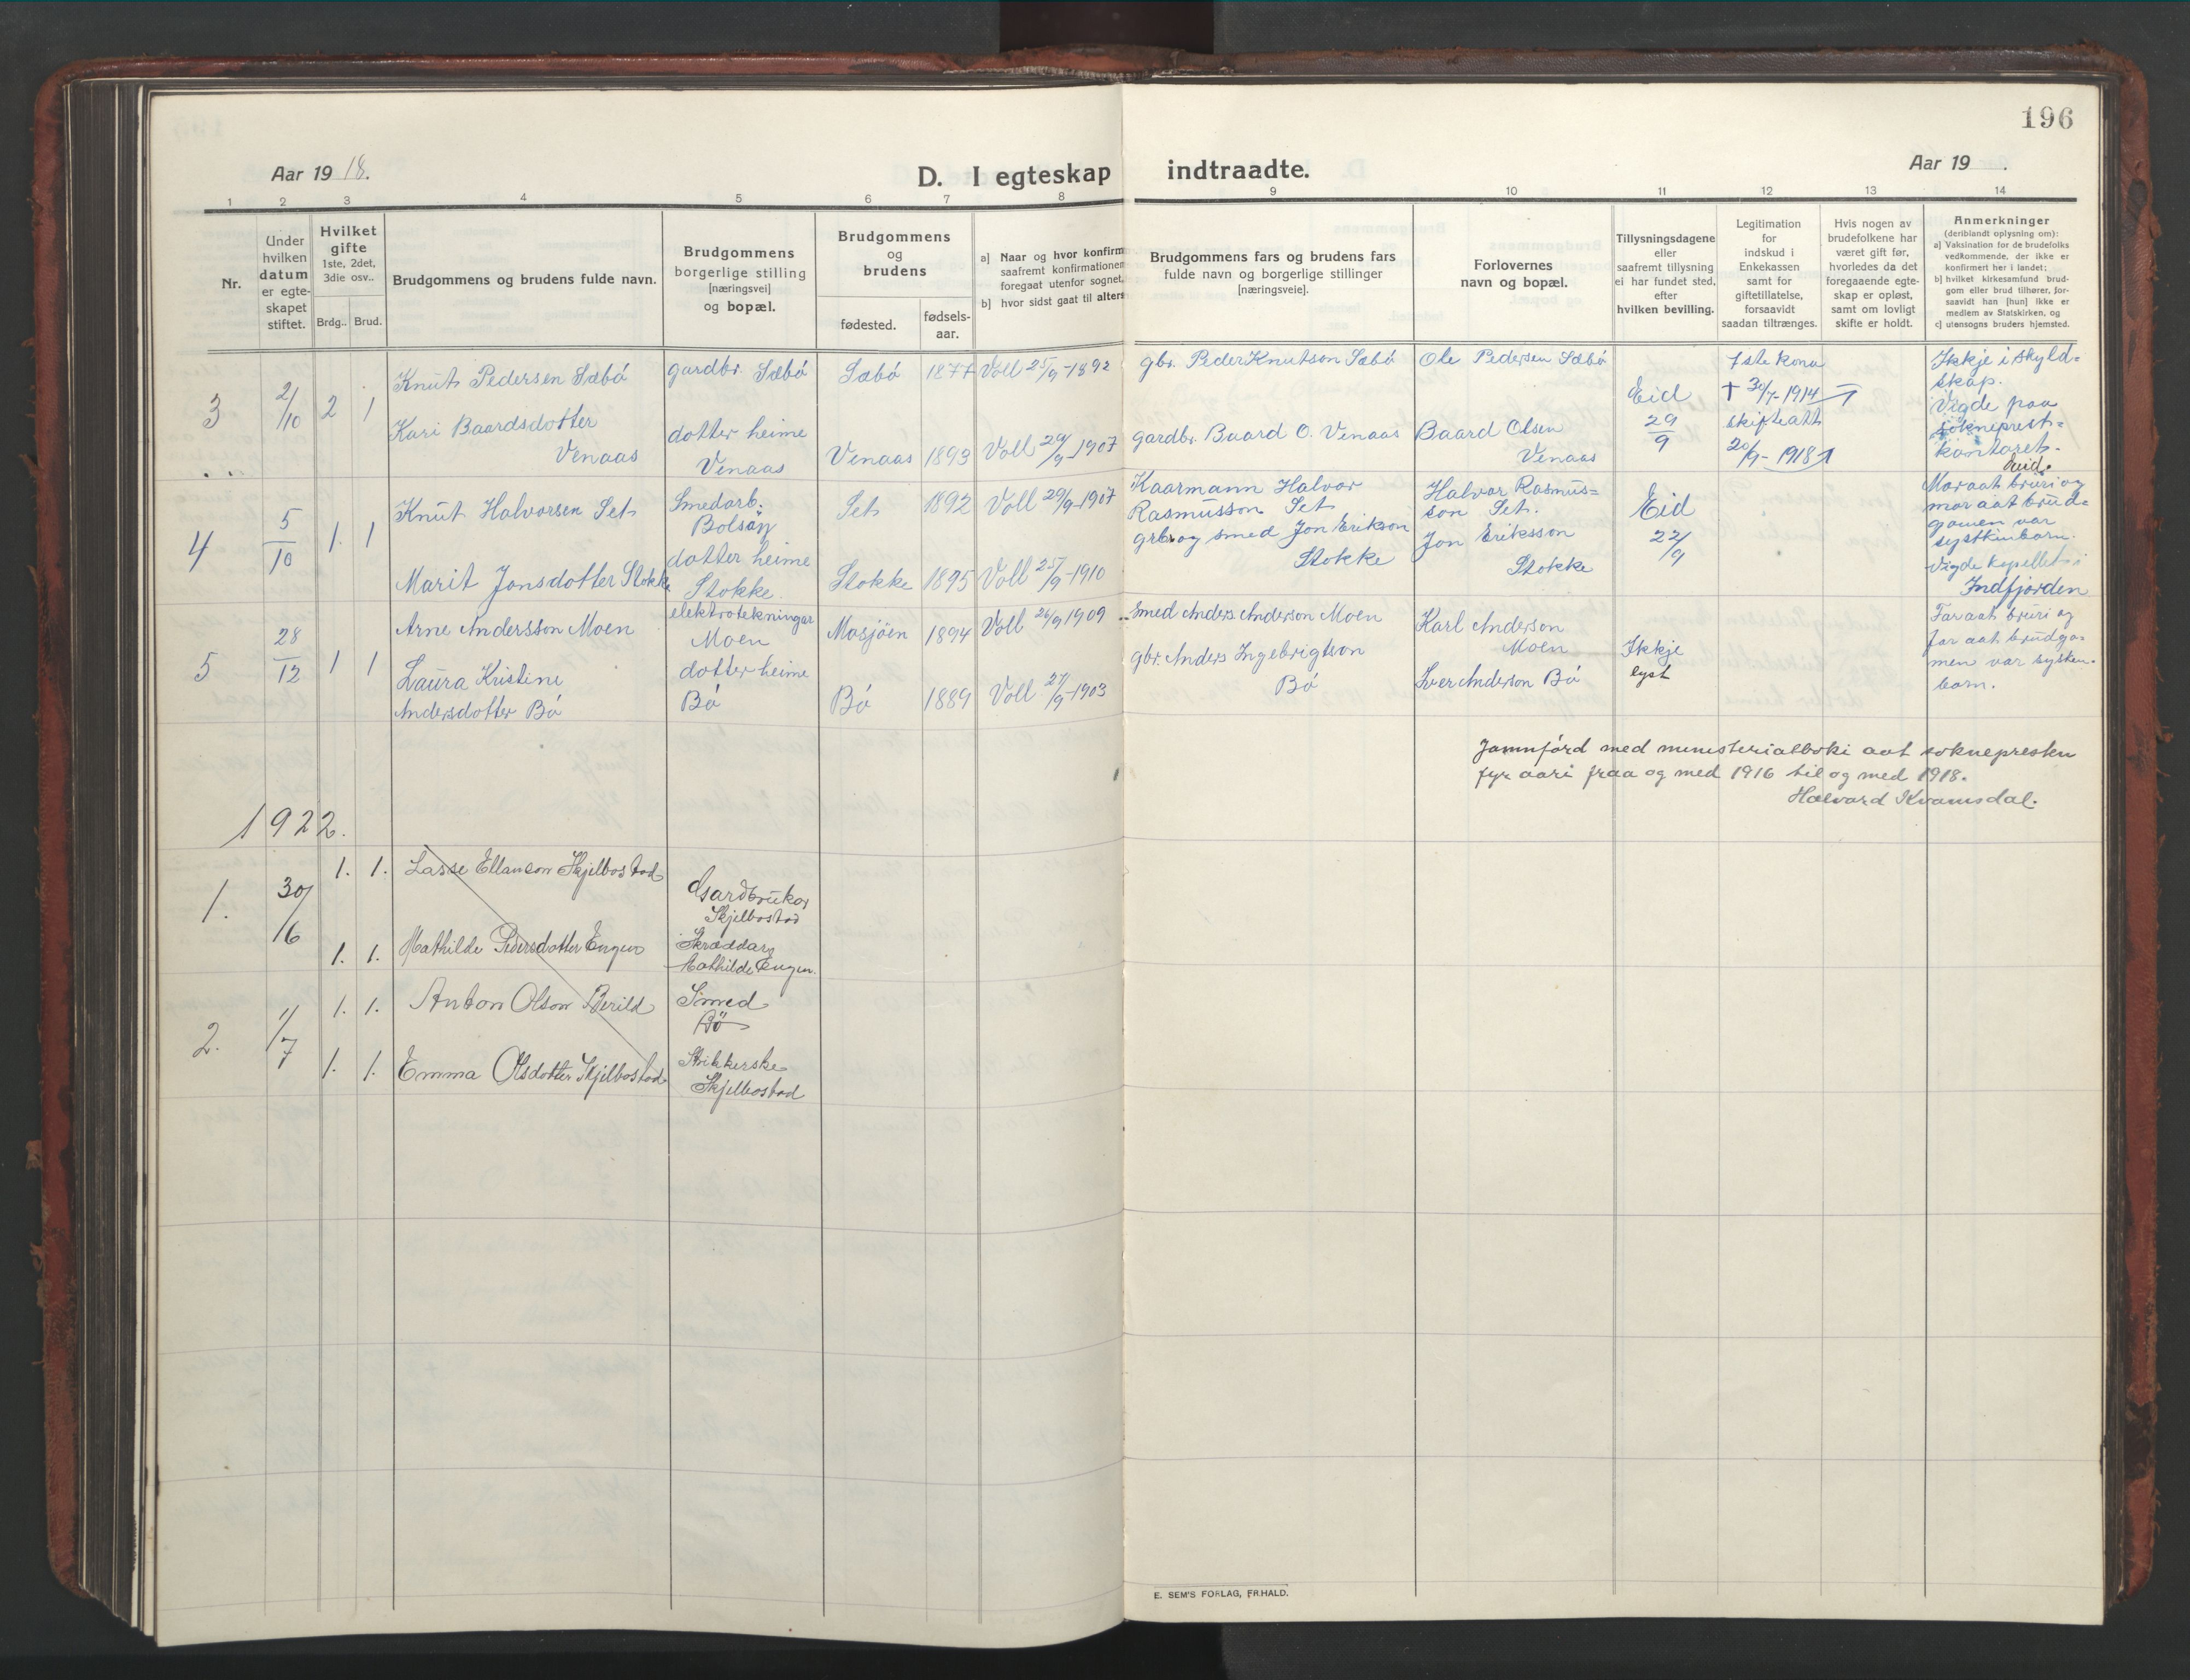 196
Aar 19 18.
D. I egteskap indtraadte.
Aar 19 .
1 2 3 4 5 6 7 8 9 10 11 12 13 14
Nr.
Under hvilken datum er egteskapet stiftet.
Hvilket gifte
1ste, 2det, 3die osv..
Brdg.. Brud.
Brudgommens og brudens fulde navn.
Brudgommens borgerlige stilling [næringsvei] og bopæl.
Brudgommens og brudens
fødested.
fødsels-aar.
a] Naar og hvor konfirm
saafremt konfirmationen
foregaat utenfor sognet,
b] hvor sidst gaat til alters
Brudgommens fars og brudens fars
fulde navn og borgerlige stillinger
[næringsveie].
Forlovernes
navn og bopæl.
Tillysningsdagene
eller
saafremt tillysning
ei har fundet sted,
efter
hvilken bevilling.
Legitimation
for
indskud i
Enkekassen
samt for
giftetillatelse,
forsaavidt
saadan tiltrænges.
Hvis nogen av
brudefolkene har
været gift før,
hvorledes da det
foregaaende egte-
skap er opløst,
samt om lovligt
skifte er holdt.
Anmerkninger
(deriblandt oplysning om):
a] Vaksination for de brudefolks
vedkommende, der ikke er
konfirmert her i landet;
b] hvilket kirkesamfund brud-
gom eller brud tilhører, for-
saavidt han [hun] ikke er
medlem av Statskirken, og
c] utensogns bruders hjemsted.
3 2/10 2 1
Knut Pedersen Sæbø
gardbr. Sæbø
Sæbø 1877 Voll 25/9-1892
gbr. Peder Knutson Sæbø
Ole Pedersen Sæbø
Kari Baardsdotter
Venaas
dotter heime
Venaas
Venaas 1893 Voll 29/9-1907
gardbr. Baard O. Venaas
Baard Olsen
Venaas
Eid
29
9
1ste kona
† 30/7-1914
skifteatt
20/9-1918
Ikkje i skyld=
skap.
Vigde paa
sokneprest=
kontoret.
4 5/10 1. 1
Knut Halvorsen Set
Smedarb.
Bolsøy
Set 1892 Voll 29/9-1907
Kaarmann Halvor
Rasmusson Set
Halvor Rasmus=
son Set.
Marit Jonsdotter Stokke
dotter heime
Stokke
Stokke 1895 Voll 25/9-1910
grbr og smed Jon Erikson
Stokke
Jon Eriksson
Stokke
Eid
22/9
Eid.
Mor aat bruri og
mor aat brud=
gomen var
syskinbarn.
Vigde kapellet i
Indfjorden
5 28/12 1 1
Arne Andersson Moen
elektrotekningar
Moen
Mosjøen 1894 Voll 26/9 1909
Smed Anders Anderson Moen
Karl Anderson
Moen
Laura Kristine
Andersdotter Bø
dotter heime
Bø
Bø 1889 Voll 27/9-1903
gbr. Anders Ingebrigtson
Bø
Iver Anderson Bø
Ikkje
lyst
Far aat bruri og
far aat brudgo-
men var sysken-
barn.
Jamnførd med ministerialboki aat soknepresten
fyr aari fraa og med 1916 til og med 1918.
Halvard Kvamsdal.
1922.
1. 30/6
1. 1. Lasse Ellanson Skjelbostad
Gardbrukar
Skjelbostad
1. 1. Mathilde Pedersdotter Engen
Skræddary
Mathilde Engen.
2. 1/7
1. 1. Anton Olson Berild
Smed
Bö
1. 1. Emma Olsdotter Skjelbostad
Strikkerske
Skjelbostad
E. SEM'S FORLAG, FR.HALD.